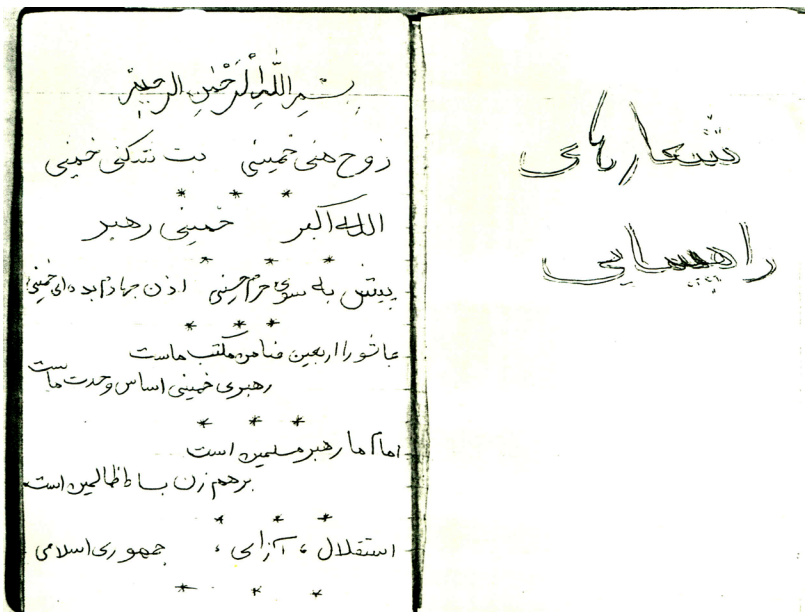 شعارهای
راهپیمایی
بسم الله الرحمن الرحیم
روح منی خمینی بت شکنی خمینی
* * *
الله اکبر خمینی رهبر
* * *
پیش به سوی حرم حسینی اذن جهادم بده ای خمینی
* * *
عاشورا اربعین ضامن مکتب ماست
رهبری خمینی اساس وحدت ماست
* * *
امام ما رهبر مسلمین است
برهم زن بساط ظالمین است
* * *
استقلال ، آزادی ، جمهوری اسلامی
* * *